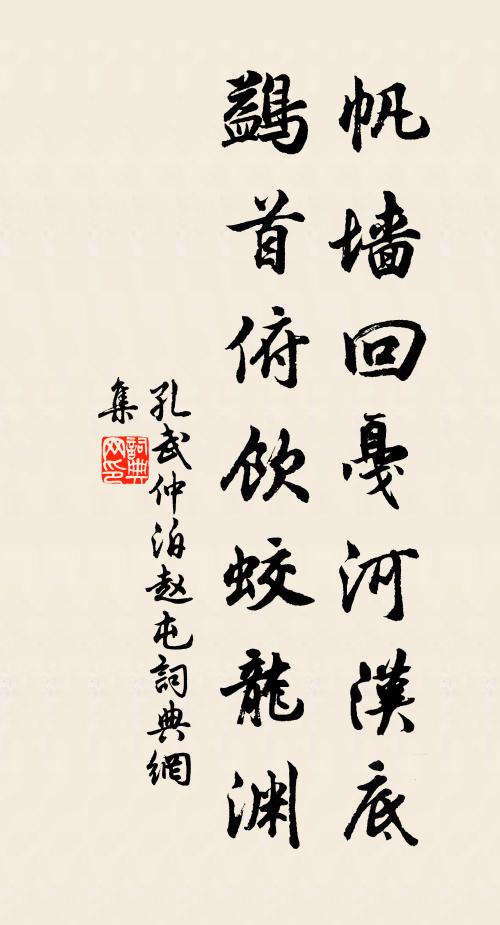 帆墙回戛河漢底
鷁首俯飲蛟龍渊
孔武仲泊赵屯詞典網
集
詞典
网印